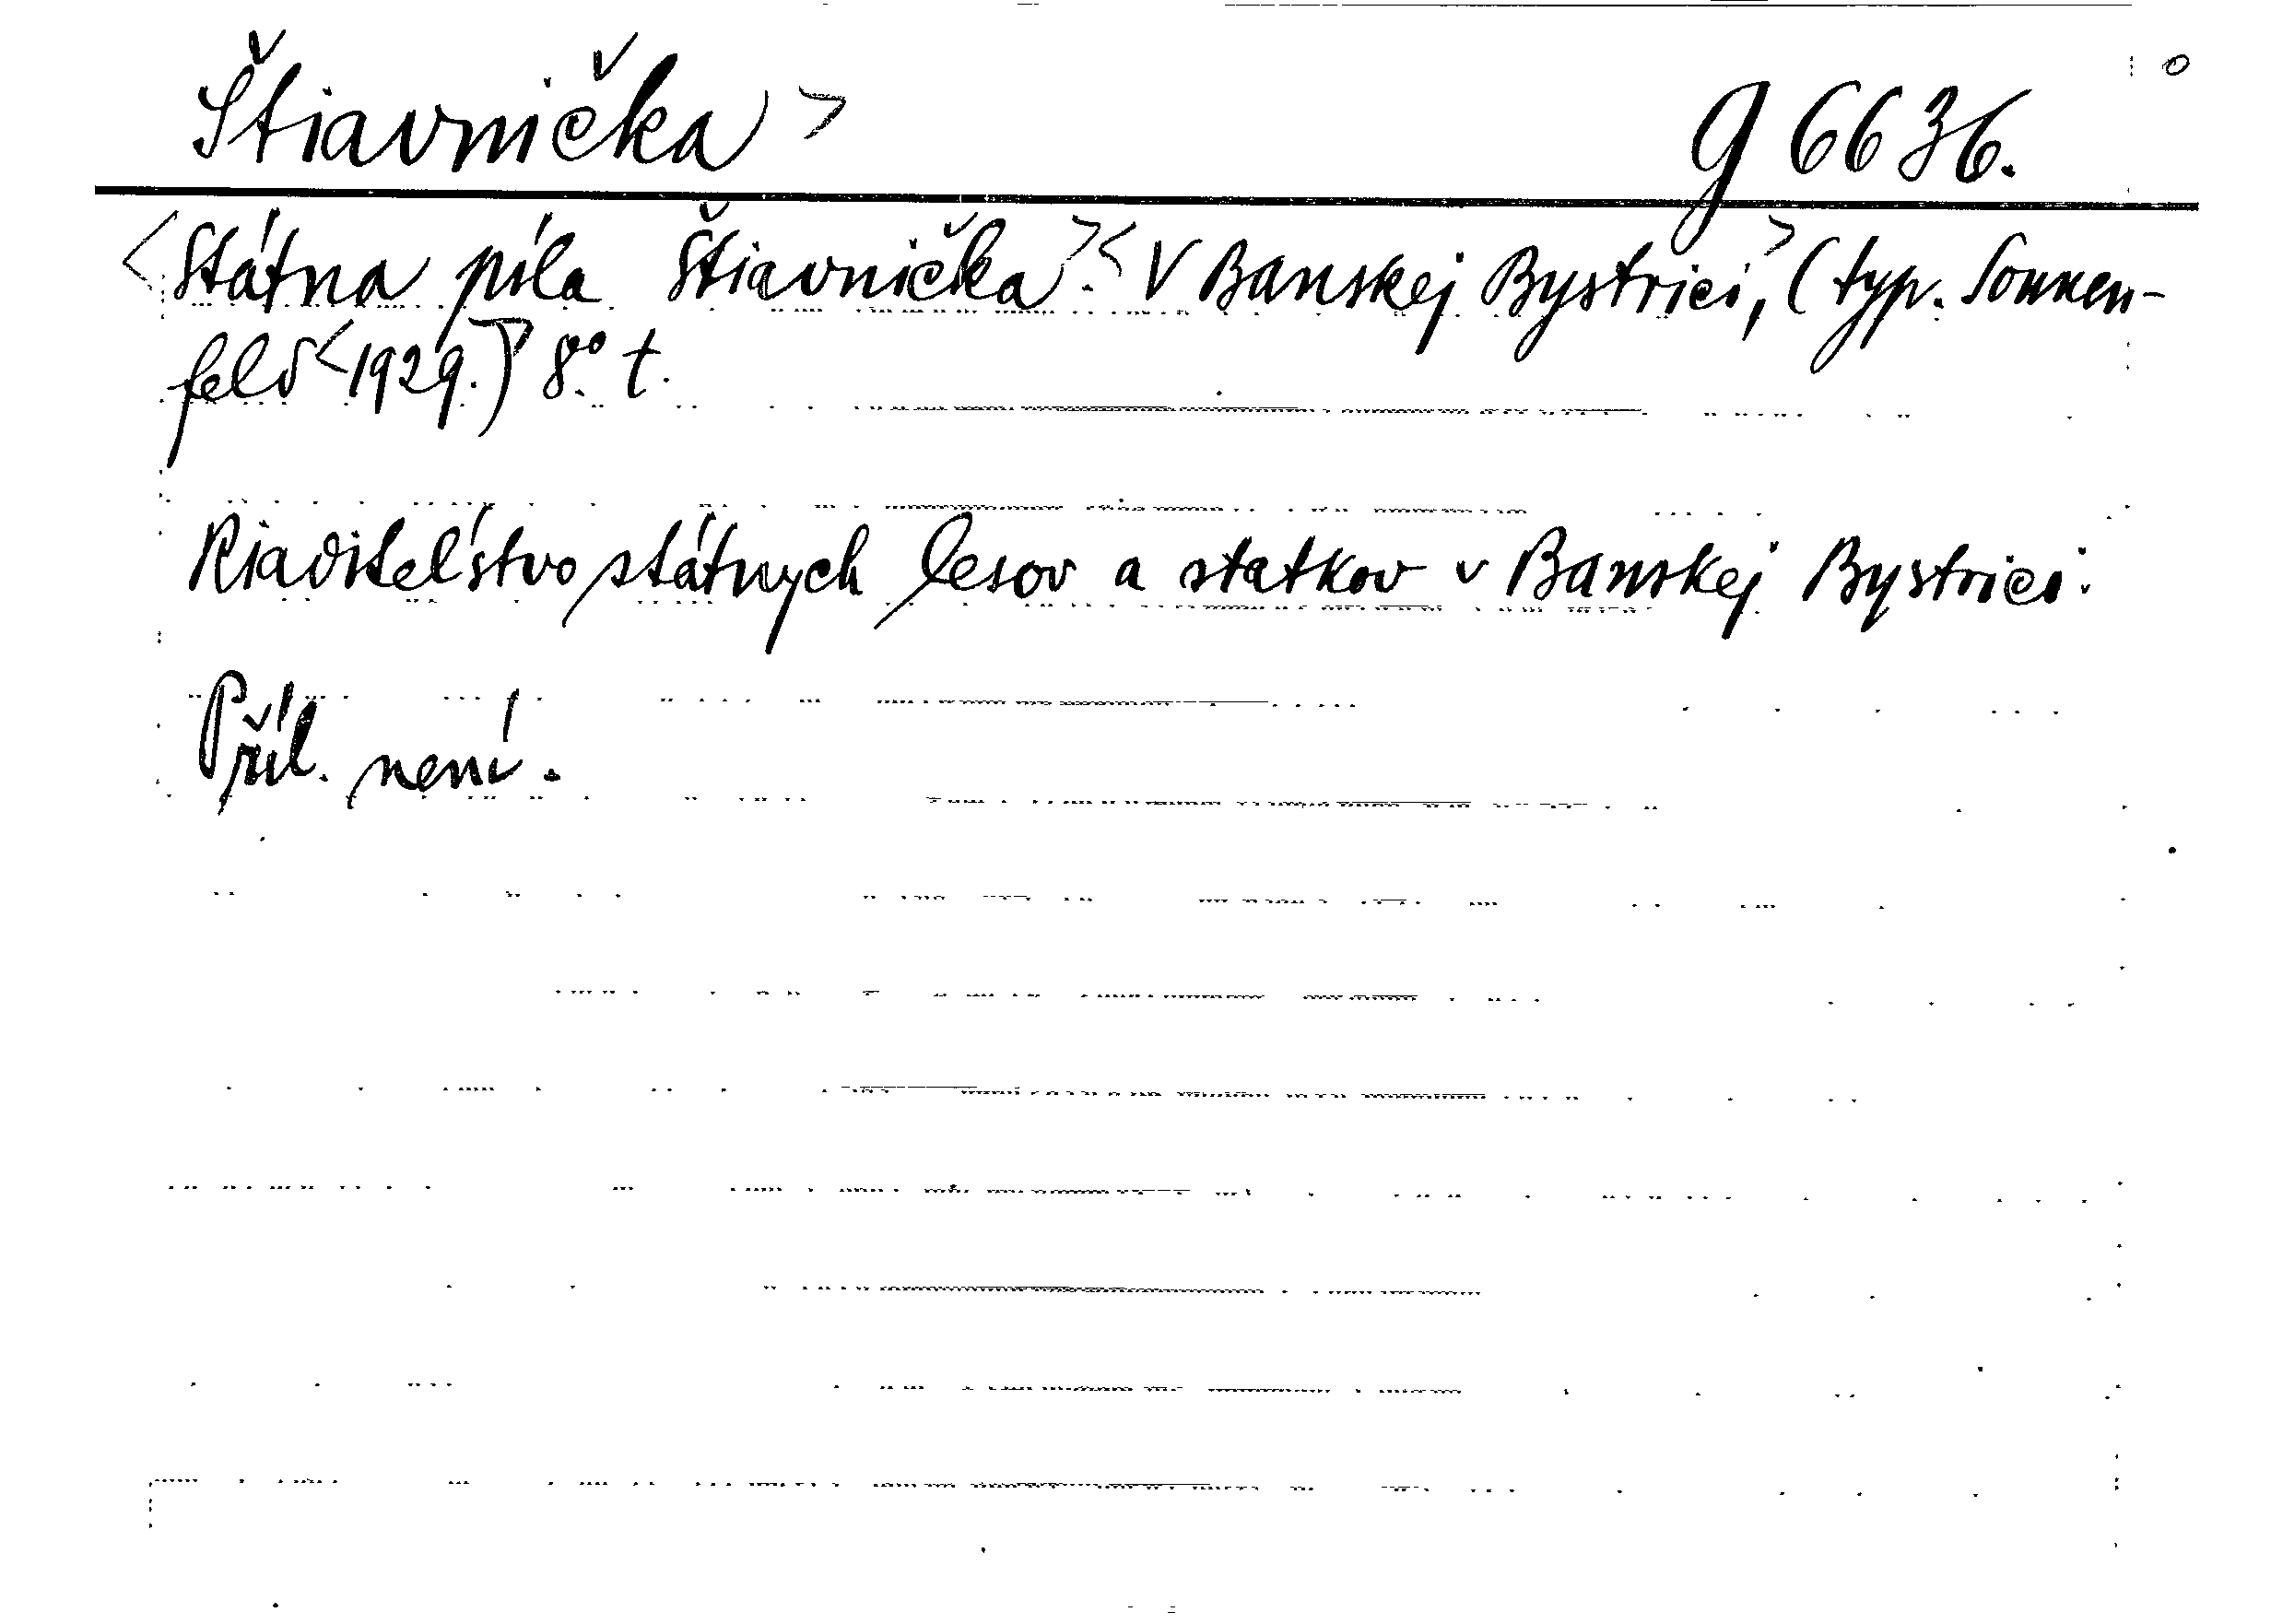 Štiavnička > g 6636.
<Státna píla Štiavnička>. <V Banskej Bystrici,> (typ. Sonnen-
feld <1929.>) 8.° t.
Riaditeľstvo státnych lesov a statkov v Banskej Bystrici.
Příl. není.